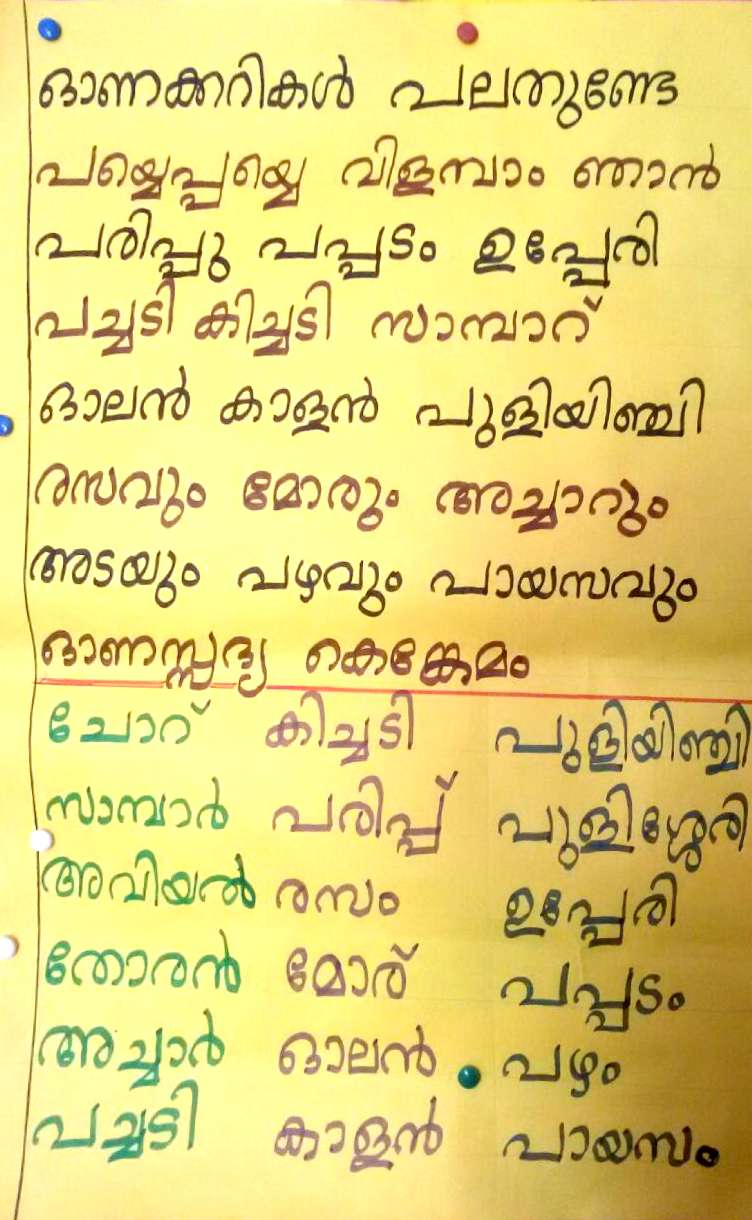 ഓണക്കറികൾ പലതുണ്ടേ
പയ്യെപ്പയ്യെ വിളമ്പാം ഞാൻ
പരിപ്പു പപ്പടം ഉപ്പേരി
പച്ചടി കിച്ചടി സാമ്പാറ്
ഓലൻ കാളൻ പുളിയിഞ്ചി
രസവും മോരും അച്ചാറും
അടയും പഴവും പായസവും
ഓണസ്സദ്യ കെങ്കേമം
ചോറ് കിച്ചടി പുളിയിഞ്ചി
സാമ്പാർ പരിപ്പ് പുളിശ്ശേരി
അവിയൽ രസം ഉപ്പേരി
തോരൻ മോര് പപ്പടം
അച്ചാർ ഓലൻ പഴം
പച്ചടി കാളൻ പായസം